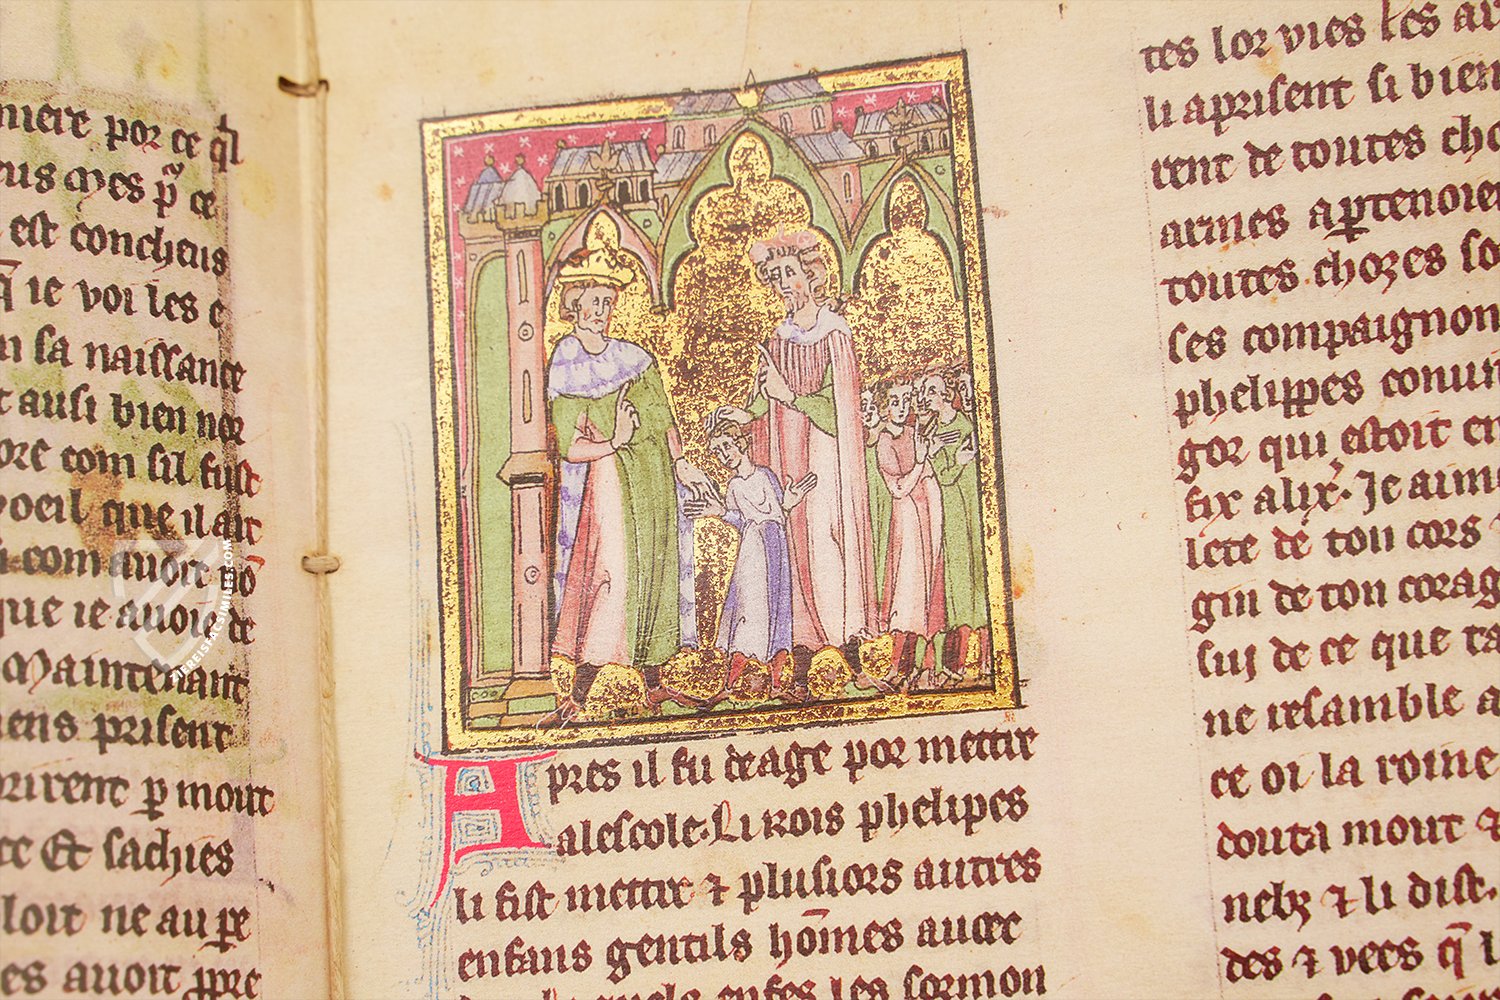 niere por ce ql
eus Mes p̃ ce
est concheus
q̃ ie voi les e
sa naissance
ausi bien nor
ore com sil fust
voeil que il ait
com avoit nõ
que ie avoie de
Maintenant
iens prisent
rirent p mout
ce Et sachies
loit ne au pe
es avoit ppre
Apres il fu deage por mettre
alescole. Li rois phelipes
li fist mettre ⁊ plusiors autres
enfans gentils hõmes avec
quels enfes les sormon
tes lor vies les ar
li aprisent si bien
rent de toutes cho
armes aptenoien
toutes chozes so
ses compaignon
phelippes conui
gor qui estoit en
fix alix̃. Je aim
lete de ton cors
gin de ton corag
sui de ce que ta
ne resamble a
ce oi la roine
douta mout ⁊
nebz ⁊ li dist.
des ⁊ vees q̃ l
WEREISFACSIMILES.COM